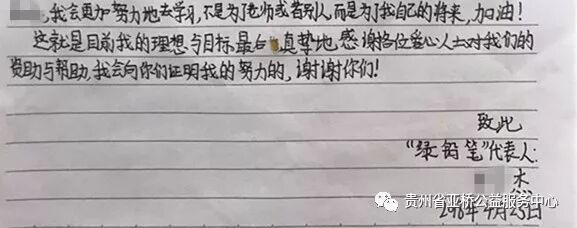 ，我会更加努力地去学习，不是为了老师或者别人而是为了我自己的将来，加油！
这就是目前我的理想与目标，最后真挚地感谢各位爱心人士对我们的
资助与帮助，我会向你们证明我的努力的，谢谢你们！
致此
“绿铅笔”代表人：
杰
贵州省亚桥公益服务中心
月23日